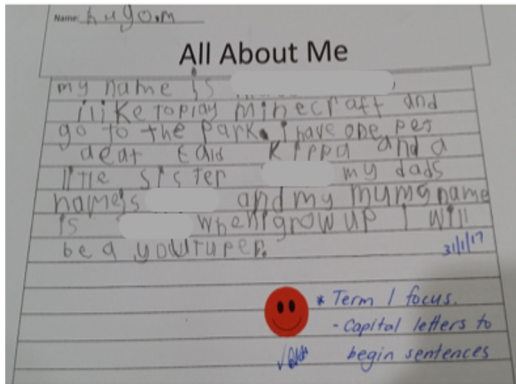 Name: hugo.m
All About Me
my name is
i like to play minecraft and
go to the park. I have one pet
Kippa and a
sister my dads
name's and my mums name
is when i grow up I will
be a
31/1/17
* Term 1 focus.
- Capital letters to
begin sentences